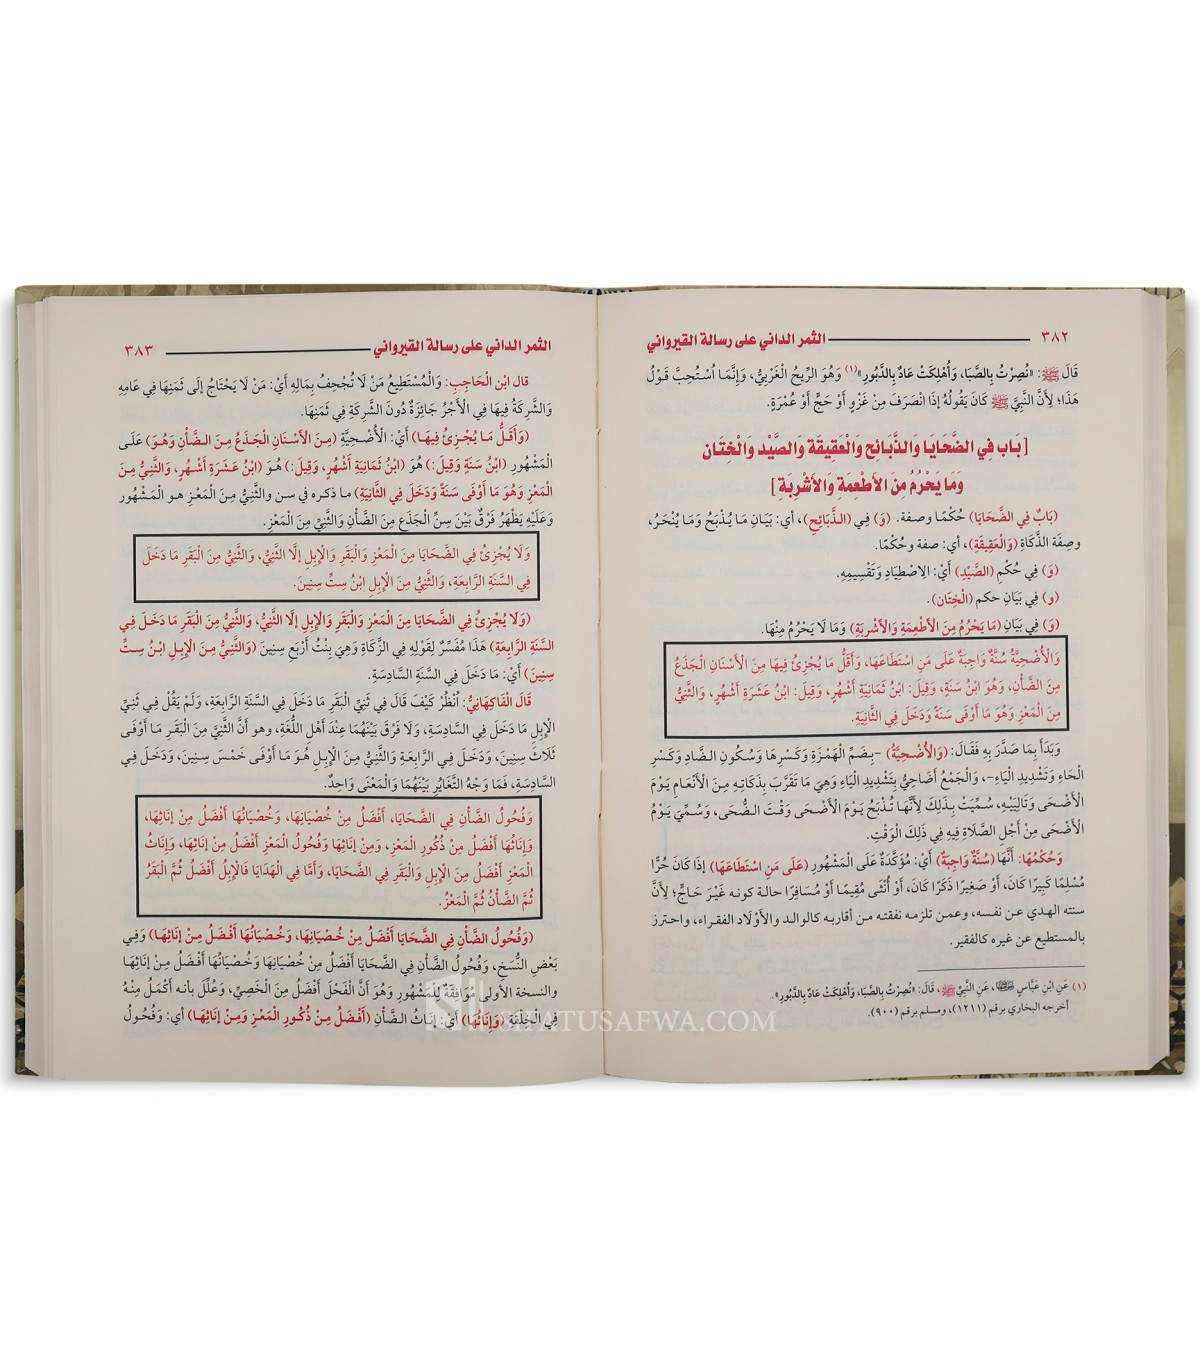 ٣٨٢ الثمر الداني على رسالة القيرواني
قَالَ ﷺ: «نُصِرْتُ بِالصَّبَا، وَأُهْلِكَتْ عَادٌ بِالدَّبُورِ»(١) وَهُوَ الرِّيحُ الْغَرْبِيُّ، وَإِنَّمَا اُسْتُحِبَّ قَوْلُ
هَذَا؛ لِأَنَّ النَّبِيَّ ﷺ كَانَ يَقُولُهُ إذَا انْصَرَفَ مِنْ غَزْوٍ أَوْ حَجٍّ أَوْ عُمْرَةٍ.
[بَاب فِي الضَّحَايَا وَالذَّبَائِحِ وَالْعَقِيقَةِ وَالصَّيْدِ وَالْخِتَانِ
وَمَا يَحْرُمُ مِنَ الأَطْعِمَةِ وَالأَشْرِبَةِ]
(بَابٌ فِي الضَّحَايَا) حُكْمًا وصفة. (وَ) فِي (الـذَّبَائِحِ)، أي: بَيَانِ مَـا يُـذْبَحُ وَمَـا يُنْحَـرُ،
وصِفَةِ الذَّكَاةِ (وَالْعَقِيقَةِ)، أي: صفة وحُكْمًا.
(وَ) فِي حُكْمِ (الصَّيْدِ) أَيْ: الِاصْطِيَادِ وَتَقْسِيمِهِ.
(و) فِي بَيَانِ حكم (الْخِتَانِ).
(وَ) فِي بَيَانِ (مَا يَحْرُمُ مِنَ الأَطْعِمَةِ وَالأَشْرِبَةِ) وَمَا لَا يَحْرُمُ مِنْهَا.
وَالْأُضْحِيَّةُ سُنَّةٌ وَاجِبَةٌ عَلَى مَنِ اسْتَطَاعَهَا، وَأَقَلُّ مَا يُجْزِئُ فِيهَا مِنَ الْأَسْنَانِ الْجَذَعُ
مِنَ الضَّأْنِ، وَهُوَ ابْنُ سَنَةٍ، وَقِيلَ: ابْنُ ثَمَانِيَةِ أَشْهُرٍ، وَقِيلَ: ابْنُ عَشَرَةِ أَشْهُرٍ، وَالثَّنِيُّ
مِنَ الْمَعْزِ وَهُوَ مَا أَوْفَى سَنَةً وَدَخَلَ فِي الثَّانِيَةِ.
وَبَدَأَ بِمَا صَدَّرَ بِهِ فَقَالَ: (وَالأُضْحِيَّةُ) -بِضَمِّ الْهَمْزَةِ وَكَسْرِهَا وَسُكُونِ الضَّادِ وَكَسْرِ
الْحَاءِ وَتَشْدِيدِ الْيَاءِ-، وَالْجَمْعُ أَضَاحِيُّ بِتَشْدِيدِ الْيَاءِ وَهِيَ مَا تَقَرَّبَ بِذَكَاتِهِ مِنَ الْأَنْعَامِ يَوْمَ
الْأَضْحَى وَتَالِيَيْهِ، سُمِّيَتْ بِذَلِكَ لِأَنَّهَا تُـذْبَحُ يَوْمَ الْأَضْحَى وَقْتَ الضُّحَى، وَسُمِّيَ يَوْمُ
الْأَضْحَى مِنْ أَجْلِ الصَّلَاةِ فِيهِ فِي ذَلِكَ الْوَقْتِ.
وَحُكْمُهَا: أَنَّهَا (سُنَّةٌ وَاجِبَةٌ) أَيْ: مُؤَكَّدَةٌ عَلَى الْمَشْهُورِ (عَلَى مَنِ اسْتَطَاعَهَا) إذَا كَانَ حُرًّا
مُسْلِمًا كَبِيرًا كَانَ، أَوْ صَغِيرًا ذَكَرًا كَانَ، أَوْ أُنْثَى مُقِيمًا أَوْ مُسَافِرًا حالة كونه غَيْرَ حَاجٍّ؛ لِأَنَّ
سنته الهدي عن نفسه، وعمن تلزمه نفقته من أقاربه كالوالد والأَوْلَادِ الفقراء، واحترز
بالمستطيع عن غيره كالفقير.
(١) عَنِ ابْنِ عَبَّاسٍ، عَنِ النَّبِيِّ ﷺ، قَالَ: «نُصِرْتُ بِالصَّبَا، وَأُهْلِكَتْ عَادٌ بِالدَّبُورِ».
أخرجه البخاري برقم (١٢١١)، ومسلم برقم (٩٠٠).
الثمر الداني على رسالة القيرواني ٣٨٣
قال ابْنِ الْحَاجِبِ: وَالْمُسْتَطِيعُ مَنْ لَا تُجْحِفُ بِمَالِهِ أَيْ: مَنْ لَا يَحْتَاجُ إلَى ثَمَنِهَا فِي عَامِهِ
وَالشَّرِكَةُ فِيهَا فِي الْأَجْرُ جَائِزَةٌ دُونَ الشَّرِكَةِ فِي ثَمَنِهَا.
(وَأَقَلُّ مَا يُجْزِئُ فِيهَا) أَيْ: الْأُضْحِيَّةِ (مِنَ الأَسْنَانِ الْجَذَعُ مِنَ الضَّأْنِ وَهُوَ) عَلَى
الْمَشْهُورِ (ابْنُ سَنَةٍ وَقِيلَ:) هُوَ (ابْنُ ثَمَانِيَةِ أَشْهُرٍ، وَقِيلَ:) هُوَ (ابْنُ عَشَرَةِ أَشْهُرٍ، وَالثَّنِيُّ مِنَ
الْمَعْزِ وَهُوَ مَا أَوْفَى سَنَةً وَدَخَلَ فِي الثَّانِيَةِ) ما ذكره في سن والثَّنِيُّ مِنَ الْمَعْزِ هو الْمَشْهُور
وَعَلَيْهِ يَظْهَرُ فَرْقٌ بَيْنَ سِنِّ الْجَذَعِ مِنَ الضَّأْنِ وَالثَّنِيِّ مِنَ الْمَعْزِ.
وَلَا يُجْزِئُ فِي الضَّحَايَا مِنَ الْمَعْزِ وَالْبَقَرِ وَالْإِبِلِ إلَّا الثَّنِيُّ، وَالثَّنِيُّ مِنَ الْبَقَرِ مَا دَخَلَ
فِي السَّنَةِ الرَّابِعَةِ، وَالثَّنِيُّ مِنَ الْإِبِلِ ابْنُ سِتِّ سِنِينَ.
(وَلَا يُجْزِئُ فِي الضَّحَايَا مِنَ الْمَعْزِ وَالْبَقَرِ وَالإِبِلِ إلَّا الثَّنِيُّ، وَالثَّنِيُّ مِنَ الْبَقَرِ مَا دَخَلَ فِي
السَّنَةِ الرَّابِعَةِ) هَذَا مُفَسِّرٌ لِقَوْلِهِ فِي الزَّكَاةِ وَهِيَ بِنْتُ أَرْبَعِ سِنِينَ (وَالثَّنِيُّ مِنَ الإِبِلِ ابْنُ سِتِّ
سِنِينَ) أَيْ: مَا دَخَلَ فِي السَّنَةِ السَّادِسَةِ.
قَالَ الْفَاكِهَانِيُّ: اُنْظُرْ كَيْفَ قَالَ فِي ثَنِيِّ الْبَقَرِ مَا دَخَلَ فِي السَّنَةِ الرَّابِعَةِ، وَلَمْ يَقُلْ فِي ثَنِيِّ
الْإِبِلِ مَا دَخَلَ فِي السَّادِسَةِ، وَلَا فَرْقَ بَيْنَهُمَا عِنْدَ أَهْلِ اللُّغَةِ، وهو أَنَّ الثَّنِيَّ مِنَ الْبَقَرِ مَا أَوْفَى
ثَلَاثَ سِنِينَ، وَدَخَلَ فِي الرَّابِعَةِ وَالثَّنِيُّ مِنَ الْإِبِلِ هُوَ مَا أَوْفَى خَمْسَ سِنِينَ، وَدَخَلَ فِي
السَّادِسَةِ، فَمَا وَجْهُ التَّغَايُرِ بَيْنَهُمَا وَالْمَعْنَى وَاحِدٌ.
وَفُحُولُ الضَّأْنِ فِي الضَّحَايَا، أَفْضَلُ مِنْ خُصْيَانِهَا، وَخُصْيَانُهَا أَفْضَلُ مِنْ إنَاثِهَا،
وَإِنَاثُهَا أَفْضَلُ مِنْ ذُكُورِ الْمَعْزِ، وَمِنْ إنَاثِهَا وَفُحُولُ الْمَعْزِ أَفْضَلُ مِنْ إنَاثِهَا، وَإِنَاثُ
الْمَعْزِ أَفْضَلُ مِنَ الْإِبِلِ وَالْبَقَرِ فِي الضَّحَايَا، وَأَمَّا فِي الْهَدَايَا فَالْإِبِلُ أَفْضَلُ ثُمَّ الْبَقَرُ
ثُمَّ الضَّأْنُ ثُمَّ الْمَعْزُ.
(وَفُحُولُ الضَّأْنِ فِي الضَّحَايَا أَفْضَلُ مِنْ خُصْيَانِهَا، وَخُصْيَانُهَا أَفْضَلُ مِنْ إنَاثِهَا) وَفِي
بَعْضِ النُّسَخِ، وَفُحُولُ الضَّأْنِ فِي الضَّحَايَا أَفْضَلُ مِنْ خُصْيَانِهَا وَخُصْيَانُهَا أَفْضَلُ مِنْ إنَاثِهَا
والنسخة الأولى مُوَافِقَةٌ لِلْمَشْهُورِ وَهُوَ أَنَّ الْفَحْلَ أَفْضَلُ مِنَ الْخَصِيِّ، وَعُلِّلَ بأنه أَكْمَلُ مِنْهُ
فِي الْخِلْقَةِ (وَإِنَاثُهَا) أَيْ: إنَاثُ الضَّأْنِ (أَفْضَلُ مِنْ ذُكُورِ الْمَعْزِ وَمِنْ إنَاثِهَا) أي: وَفُحُولُ